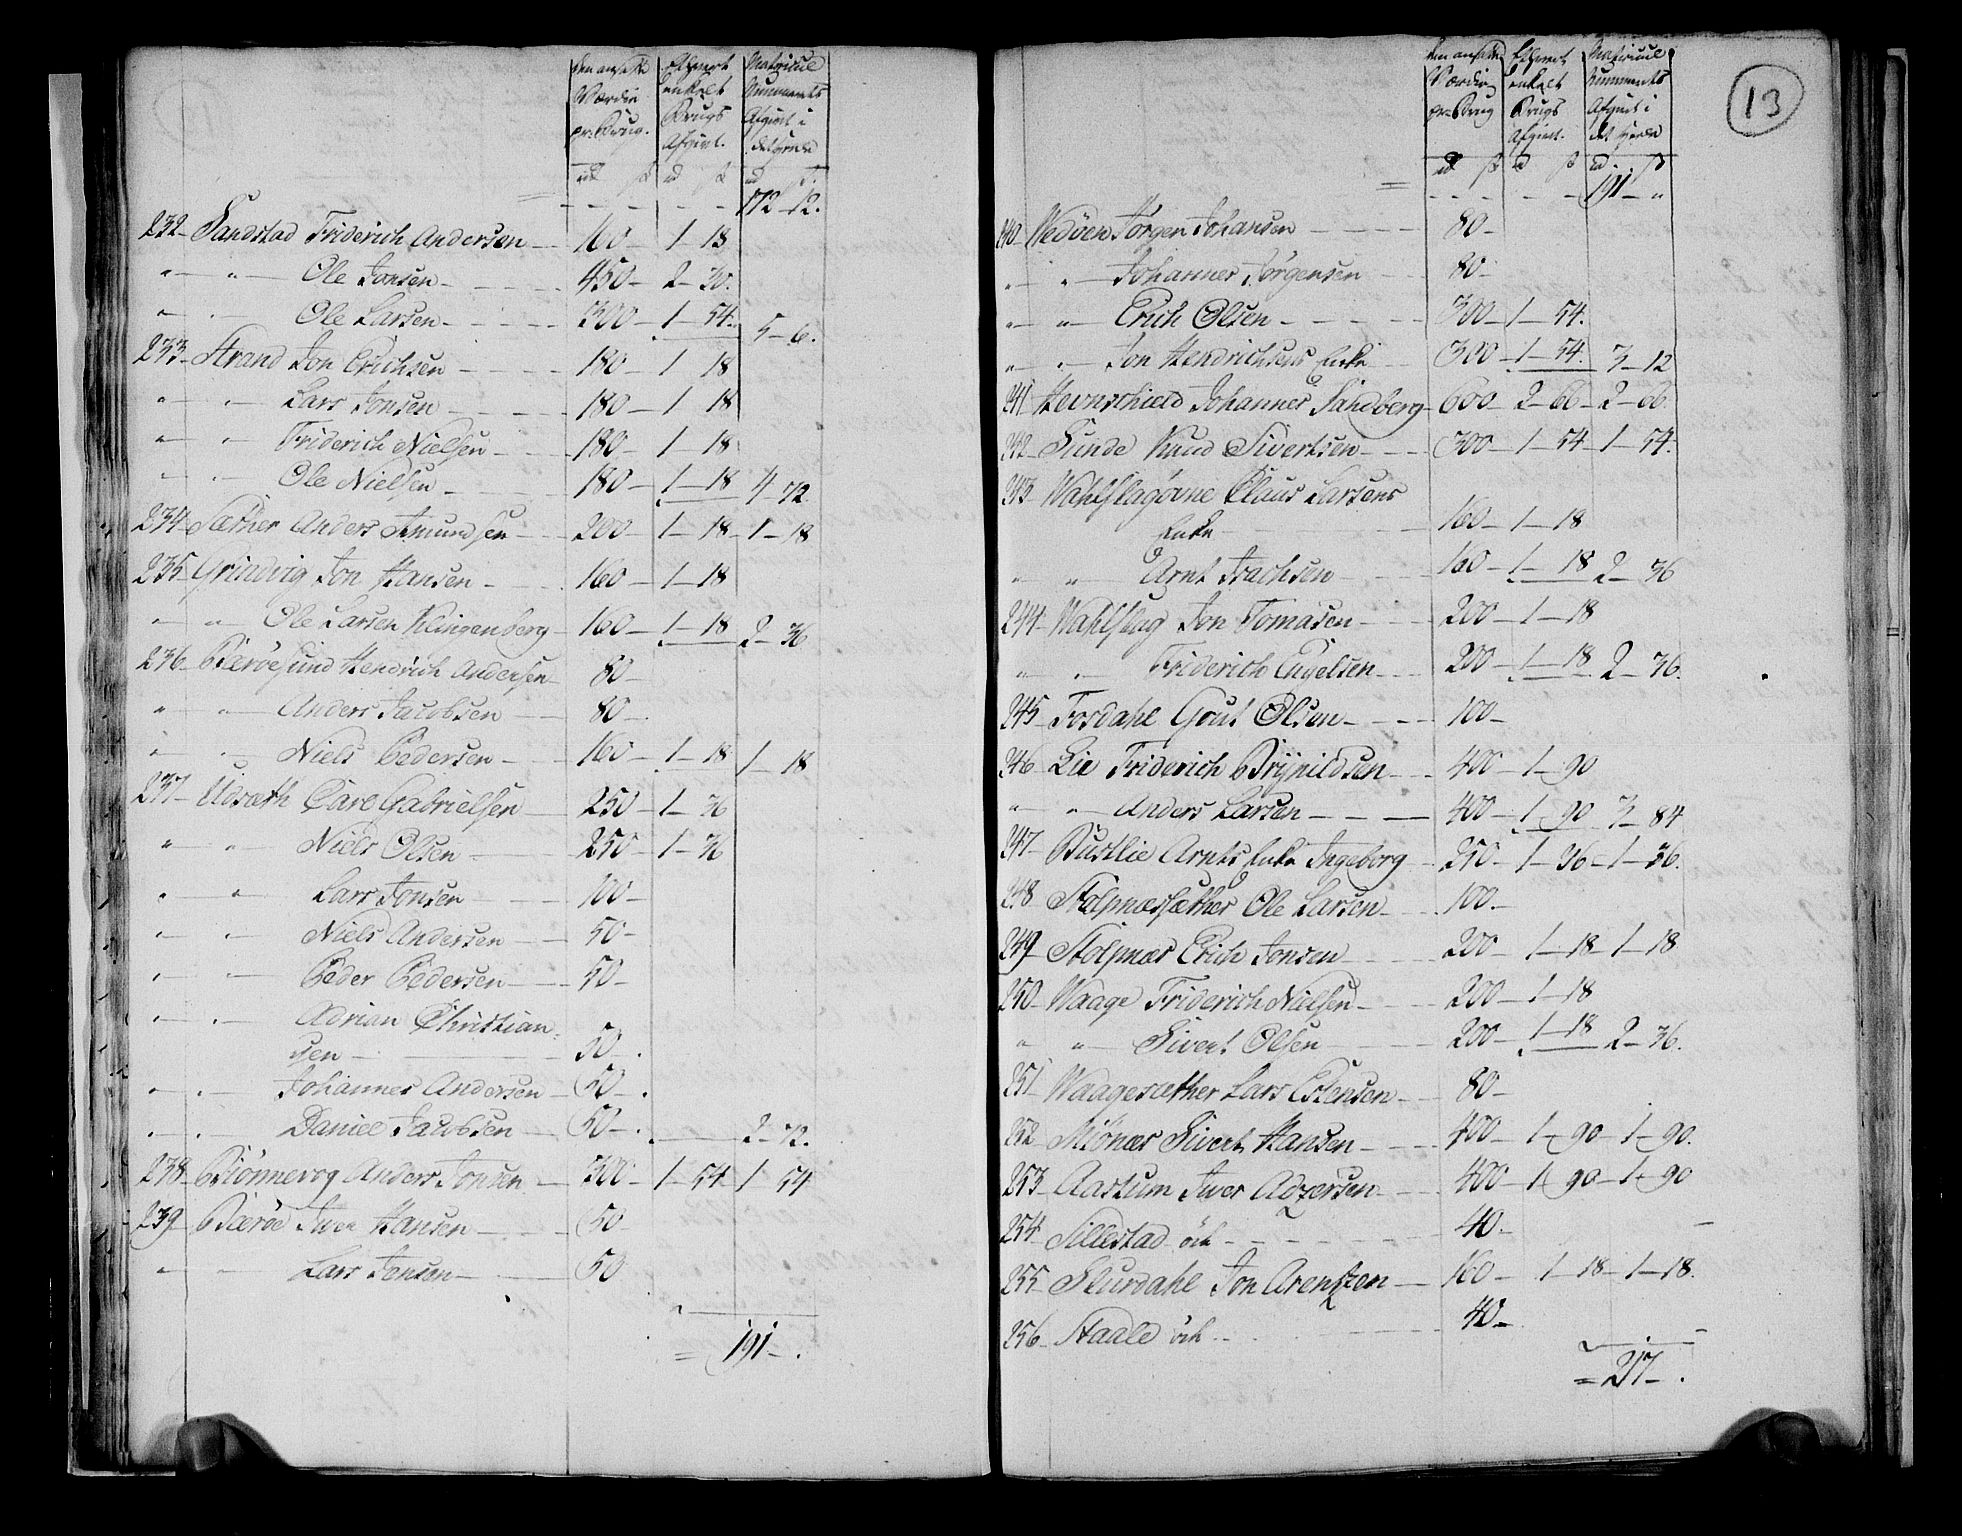 den ansatte Værdie pr: Brug. | Ethvert enkelt Brugs Afgivt. | Matricul Nummerets Afgivt i det heele
rd ß | rd ß | rd ß
= - - - - - - 172-12.
232- Sandstad Friderich Andersen - 160- 1-18
"- "- Ole Jonsen - 450- 2-30.
"- "- Ole Larsen - 300- 1-54. 5-6.
233- Strand Jon Erichsen - 180- 1 18
"- "- Lars Jonsen - 180- 1 18
"- "- Friderich Nielsen - 180- 1-18
"- "- Ole Nielsen - 180- 1-18 4 72
234- Sæther Anders Amundsen - 200- 1-18- 1-18
235- Grindvig Jon Hansen - 160- 1-18
"- "- Ole Larsen Klingenberg - 160- 1-18 2-36
236- Bærøesund Hendrich Andersen - 80-
"- "- Anders Jacobsen - 80-
"- "- Niels Pedersen - 160- 1-18 1-18
237- Udsæth Carl Gabrielsen - 250- 1-36
"- "- Niels Olsen - 250- 1-36
"- "- Lars Jonsen - 100-
"- "- Niels Andersen - 50-
"- "- Peder Pedersen - 50-
"- "- Adrian Christian-
sen - 50-
"- "- Johannes Andersen - 50-
"- "- Daniel Jacobsen - 50- 2-72.
238- Biönnevog Anders Jonsen - 300- 1-54 1 54
239- Bærøe Iver Hansen - 50-
"- "- Lars Jensen - 50
= 191-.
13
den ansatte Værdie pr: Brug | Ethvert enkelt Brugs Afgivt. | Matricul Nummerets Afgivt i det heele
rd ß | rd ß | rd. ß
= - - - - - - 191- "
240- Vedöen Jørgen Johansen - 80-
"- "- Johannes Jørgensen - 80-
"- "- Erich Olsen - 300- 1-54.
"- "- Jon Hendrichsens Enke - 300- 1-54. 3-12
241- Hevnschield Johannes Sandberg - 600- 2-66- 2-66.
242- Sunde Knud Sivertsen - 300- 1-54- 1-54.
243- Wahlslagöerne Claus Larsens
Enke - 160- 1-18
" "- Arnt Isachsen - 160- 1-18 2-36
244- Wahlslag Jon Tomasen - 200- 1-18
" "- Friderich Engelsen - 200- 1-18 2-36.
245- Fosdahl Gout Olsen - 100-
246- Lie Friderich Brynildsen - 400- 1-90
"- "- Anders Larsen - 400- 1 90 3-84
247- Bustlie Arnts Enke Ingeborg - 250- 1-36- 1-36.
248 Stolpnæssæther Ole Larsen - 100-
249- Stolpnæs Erich Jonsen - 200- 1-18- 1-18
250- Waage Friderich Nielsen - 200- 1-18
" "- Sivert Olsen - 200- 1-18 2-36.
251- Waagesæther Lars Estensen - 80-
252- Miönæs Sivert Hansen - 400- 1-90- 1-90.
253- Aastum Iver Adzersen - 400- 1-90- 1-90
254- Sillestad öde - 40- -
255- Slurdahl Jon Arentzen - 160- 1-18- 1-18.
256- Staale öde - 40- -
= 217-.